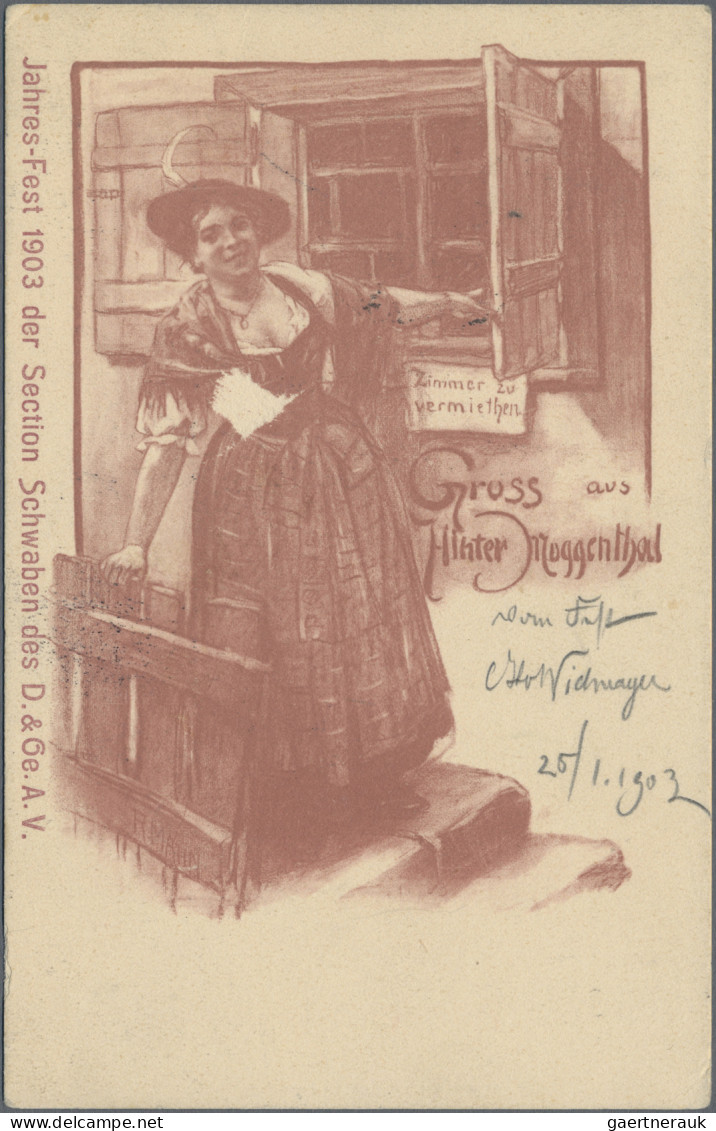 Jahres-Fest 1903 der Section Schwaben des D. & Oe. A. V.
Zimmer zu
vermiethen
Gruss aus
Hinter Muggenthal
vom Fest
Widmayer
25/1.1903
R. MAHN
gaertnerauk